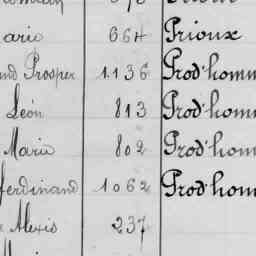 ario 664 Prioux
nd Prosper 1136 Prod'hom
Léon 813 Prod'hom
Maria 802 Prod'hom
Ferdinand 1062 Prod'hom
Alexis 237